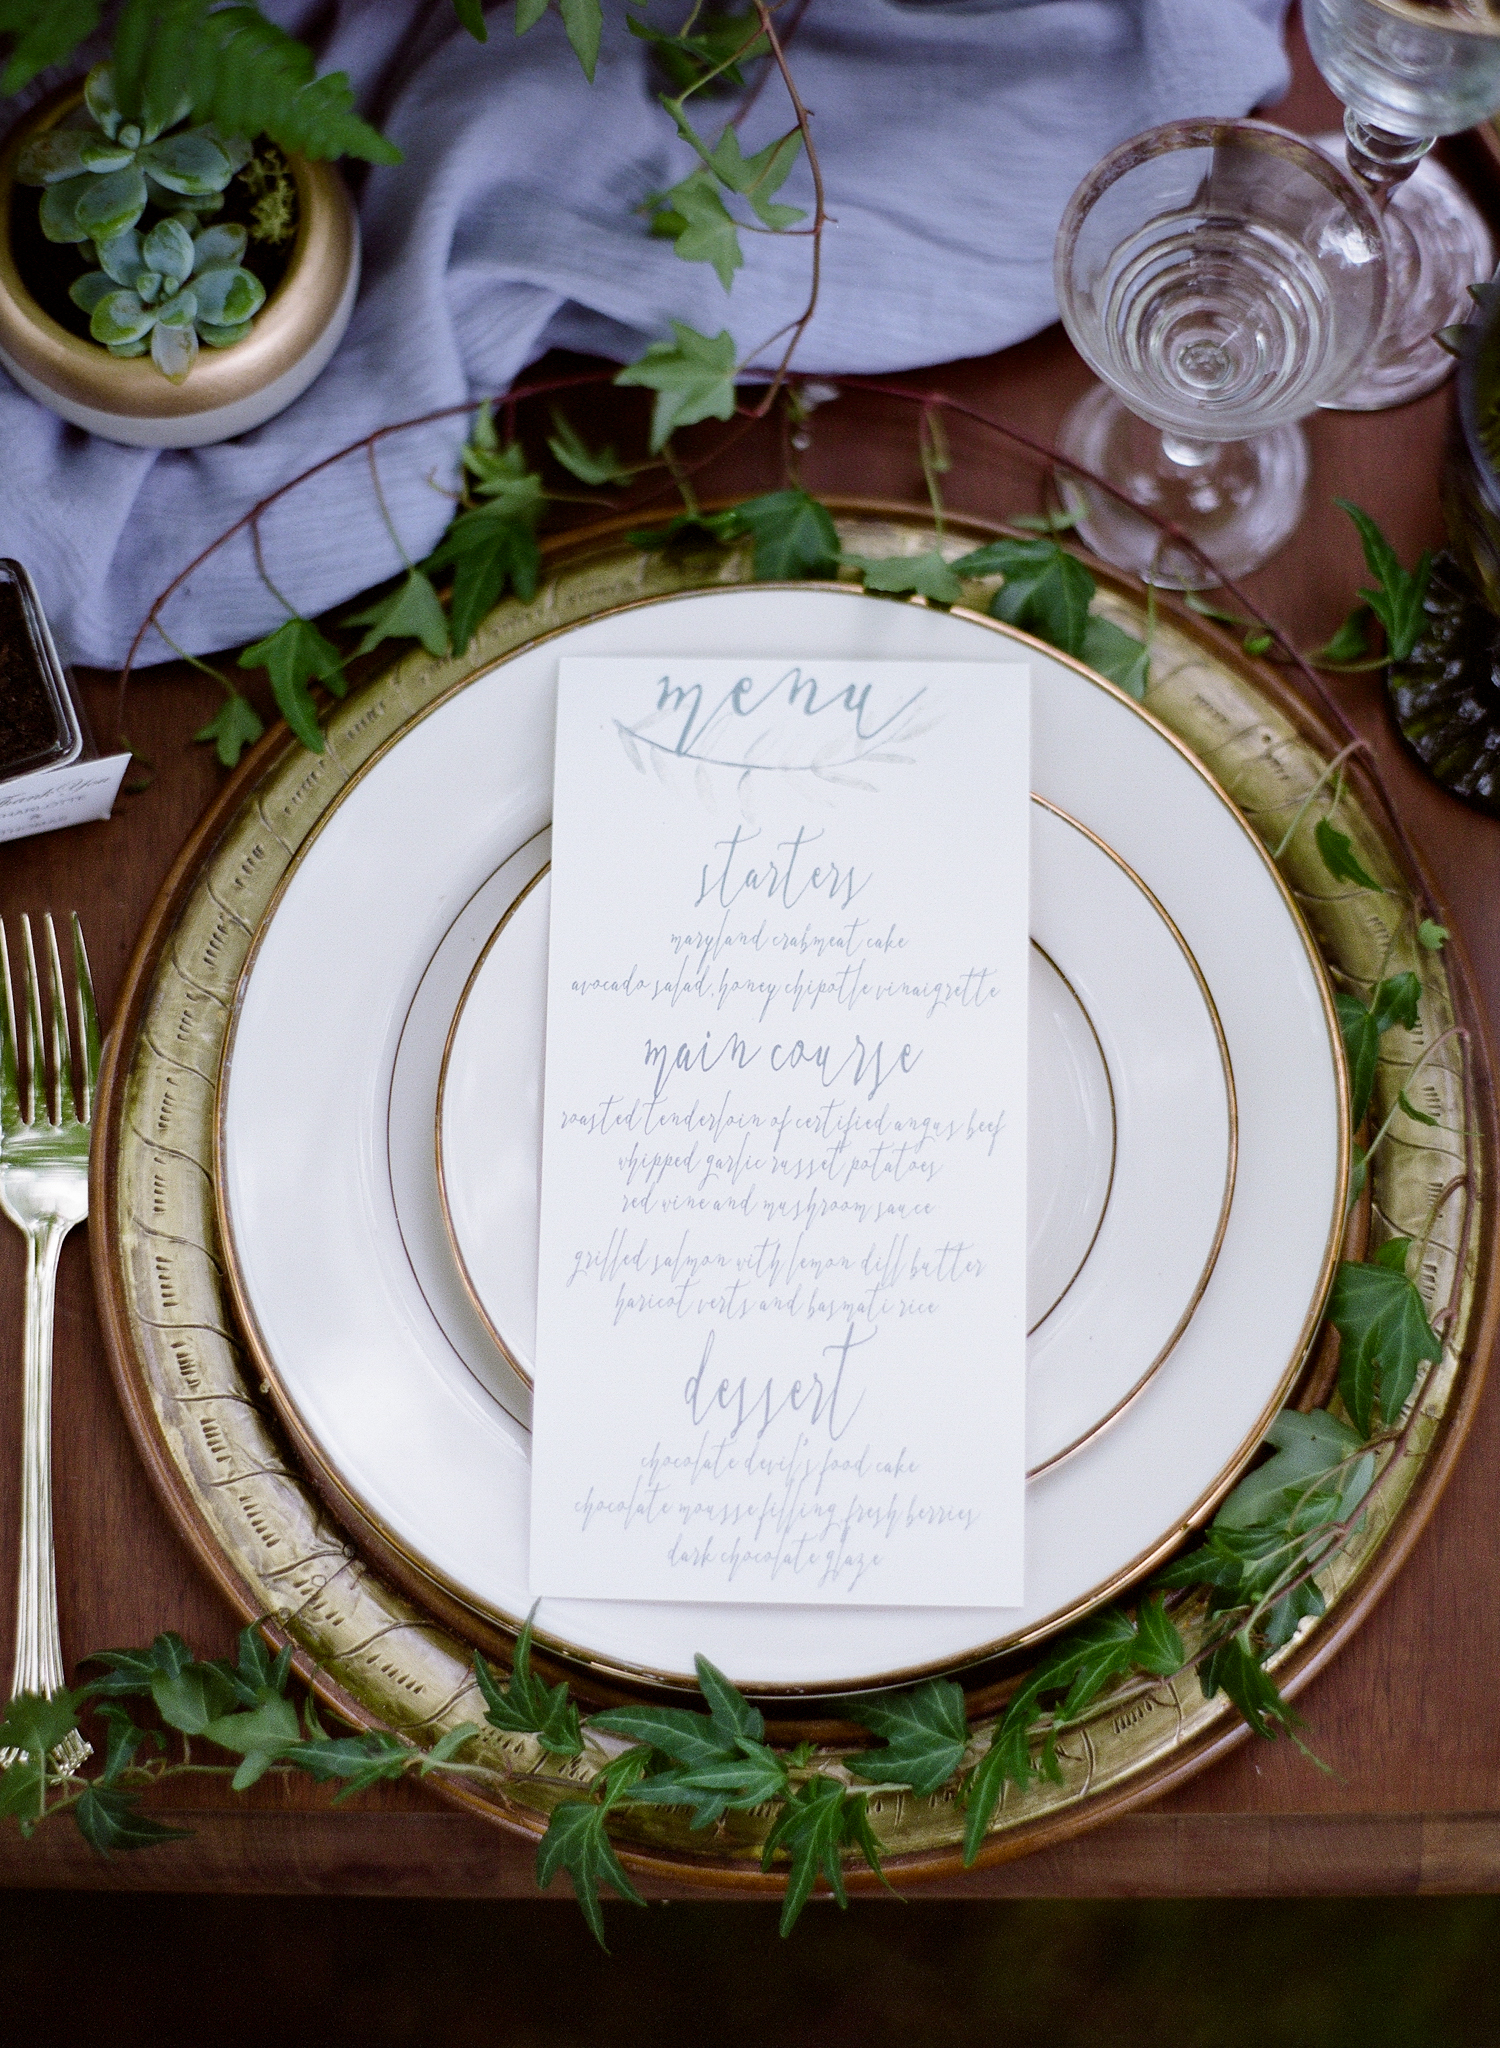 menu
starters
maryland crabmeat cake
avocado salad, honey chipotle vinaigrette
main course
roasted tenderloin of certified angus beef
whipped garlic russet potatoes
red wine and mushroom sauce
grilled salmon with lemon dill butter
haricot verts and basmati rice
dessert
chocolate devil's food cake
chocolate mousse filling, fresh berries
dark chocolate glaze
Thank You